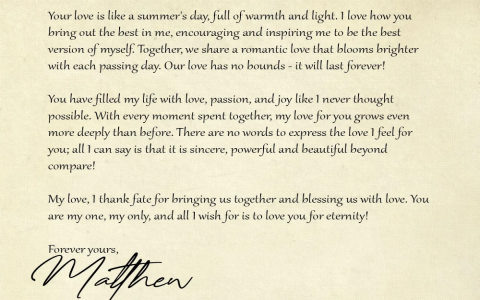 Your love is like a summer's day, full of warmth and light. I love how you
bring out the best in me, encouraging and inspiring me to be the best
version of myself. Together, we share a romantic love that blooms brighter
with each passing day. Our love has no bounds - it will last forever!
You have filled my life with love, passion, and joy like I never thought
possible. With every moment spent together, my love for you grows even
more deeply than before. There are no words to express the love I feel for
you; all I can say is that it is sincere, powerful and beautiful beyond
compare!
My love, I thank fate for bringing us together and blessing us with love. You
are my one, my only, and all I wish for is to love you for eternity!
Forever yours,
Matthew